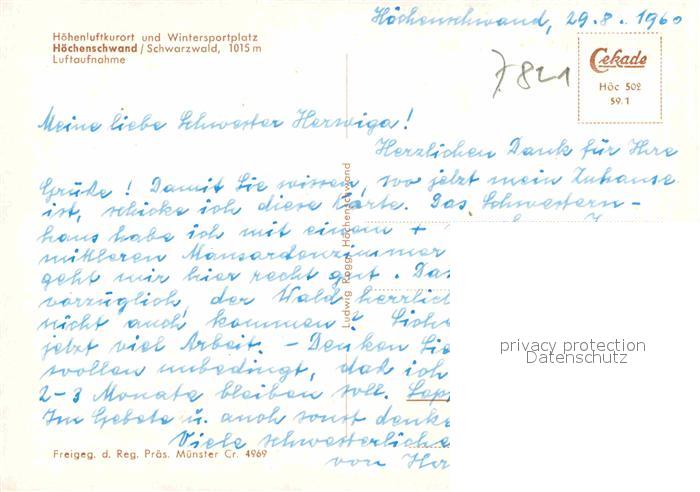 Höchenschwand, 29.8.1960
Höhenluftkurort und Wintersportplatz
Höchenschwand / Schwarzwald, 1015 m
Luftaufnahme
Cekade
Höc 502
59.1
7821
Meine liebe Schwester Herwiga!
Herzlichen Dank für Ihre
Grüße! Damit Sie wissen, wo jetzt mein Zuhause
ist, schicke ich diese Karte. Das Schwestern-
haus habe ich mit einem +
mittleren Mansardenzimmer
geht mir hier recht gut. Das
vorzüglich, der Wald herrlich
nicht auch kommen? Siche
jetzt viel Arbeit. - Denken Sie
wollen unbedingt, daß ich
2-3 Monate bleiben soll.
Im Gebete u. auch sonst denke
Viele schwesterliche
von Her
Ludwig Rogg, Höchenschwand
Freigeg. d. Reg. Präs. Münster Cr. 4969
privacy protection
Datenschutz